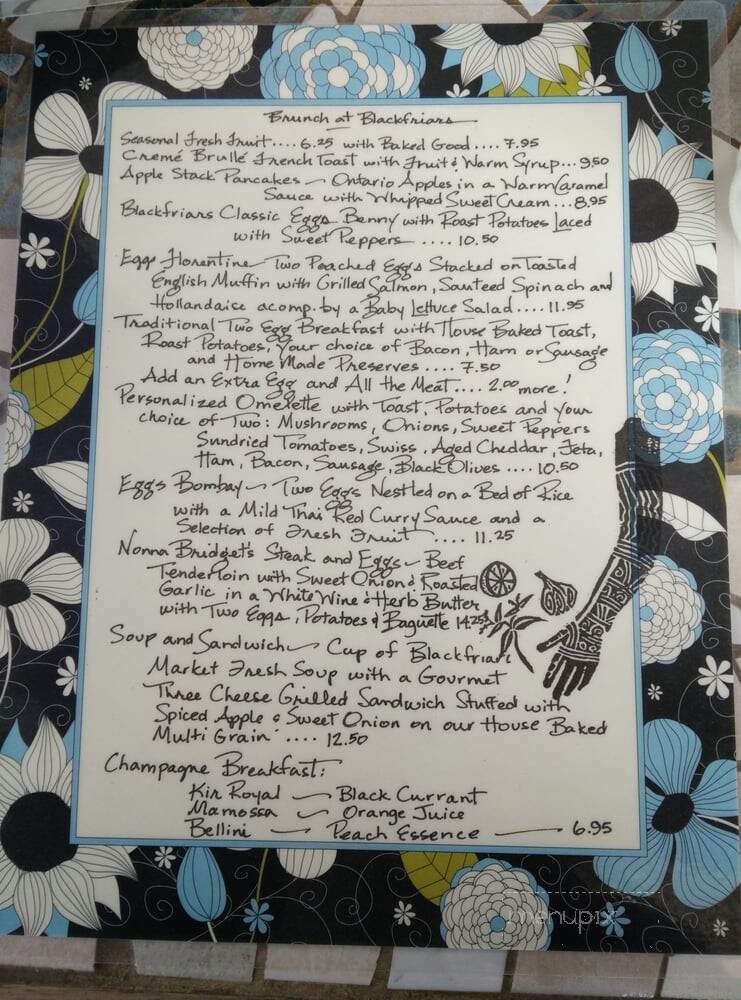 Brunch at Blackfriars
Seasonal Fresh Fruit.... 6.25 with Baked Good.... 7.95
Cremé Brullé French Toast with Fruit & Warm Syrup... 9.50
Apple Stack Pancakes – Ontario Apples in a Warm Caramel
Sauce with Whipped Sweet Cream... 8.95
Blackfriars Classic Eggs Benny with Roast Potatoes Laced
with Sweet Peppers .... 10.50
Eggs Florentine – Two Poached Eggs Stacked on Toasted
English Muffin with Grilled Salmon, Sauteed Spinach and
Hollandaise acomp. by a Baby Lettuce Salad.... 11.95
Traditional Two Egg Breakfast with House Baked Toast,
Roast Potatoes, Your choice of Bacon, Ham or Sausage
and Home Made Preserves .... 7.50
Add an Extra Egg and All the Meat.... 2.00 more!
Personalized Omelette with Toast, Potatoes and your
choice of Two: Mushrooms, Onions, Sweet Peppers
Sundried Tomatoes, Swiss, Aged Cheddar, Feta,
Ham, Bacon, Sausage, Black Olives .... 10.50
Eggs Bombay – Two Eggs Nestled on a Bed of Rice
with a Mild Thai Red Curry Sauce and a
Selection of Fresh Fruit .... 11.25
Nonna Bridget's Steak and Eggs – Beef
Tenderloin with Sweet Onion & Roasted
Garlic in a White Wine & Herb Butter
with Two Eggs, Potatoes & Baguette 14.25
Soup and Sandwich – Cup of Blackfriars
Market Fresh Soup with a Gourmet
Three Cheese Grilled Sandwich Stuffed with
Spiced Apple & Sweet Onion on our House Baked
Multi Grain .... 12.50
Champagne Breakfast:
Kir Royal – Black Currant
Mamossa – Orange Juice
Bellini – Peach Essence – 6.95
menupix